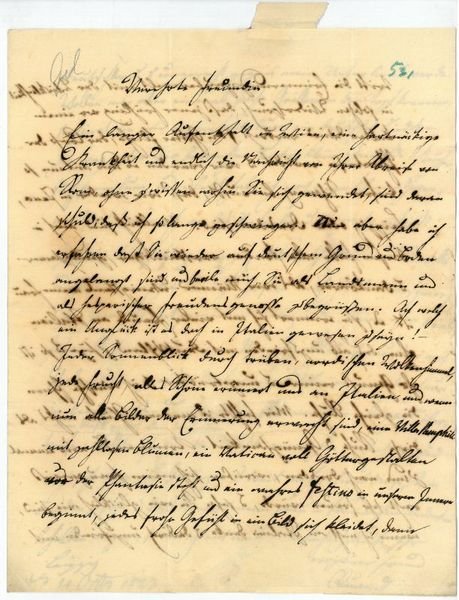 53,
Verehrte Freundin
Ein langer Aufenthalt in Wien, eine hartnäckige
Krankheit und endlich die Nachricht von Ihrer Abreise von
Rom, ohne zu wissen wohin Sie sich gewendet, sind daran
schuld, daß ich so lange geschwiegen. Nun aber habe ich
erfahren daß Sie wieder auf deutschem Grund und Boden
angelangt sind und eile mich Sie als Landsmann und
als hesperischer Freudensgenosse zu begrüssen. Ach welch
ein Unglück ist es doch in Italien gewesen zu seyn! –
Jeder Sonnenblick durch trüben, nordischen Wolkenhimmel,
jede Frucht alles Schöne erinnert uns an Italien und wenn
nun alle Bilder der Erinnerung erwacht sind, eine Villa Pamphili
mit zahllosen Blumen, ein Vatican voll Göttergestalten
vor der Phantasie steht und ein wahres Festino in unserm Innern
beginnt, jedes frohe Gefühl in ein Bild sich kleidet, dann